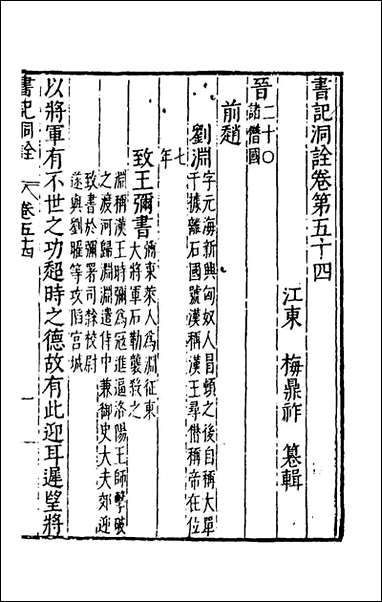 書記洞詮卷第五十四
江東 梅鼎祚 纂輯
晉 二十〇
諸僭國
前趙
劉淵 字元海新興匈奴人冒頓之後自稱大單
于據離石國號漢稱漢王尋僭稱帝在位
七
年
致王彌書 彌東萊人為淵征東
大將軍石勒襲殺之
淵稱漢王時彌為寇進逼洛陽王師擊破
之渡河歸淵淵遣侍中兼御史大夫郊迎
致書於彌署司隸校尉
遂與劉曜等攻陷宮城
以將軍有不世之功超時之德故有此迎耳遲望將
書記洞詮 卷五十四 一